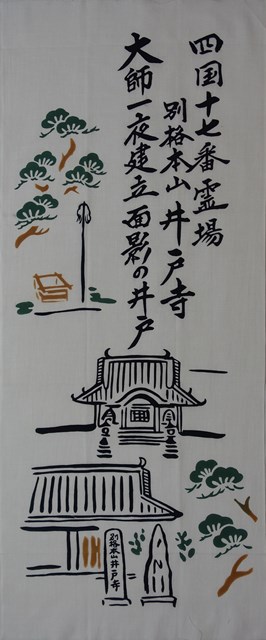 四国十七番霊場
別格本山 井戸寺
大師一夜建立面影の井戸
別格本山井戸寺